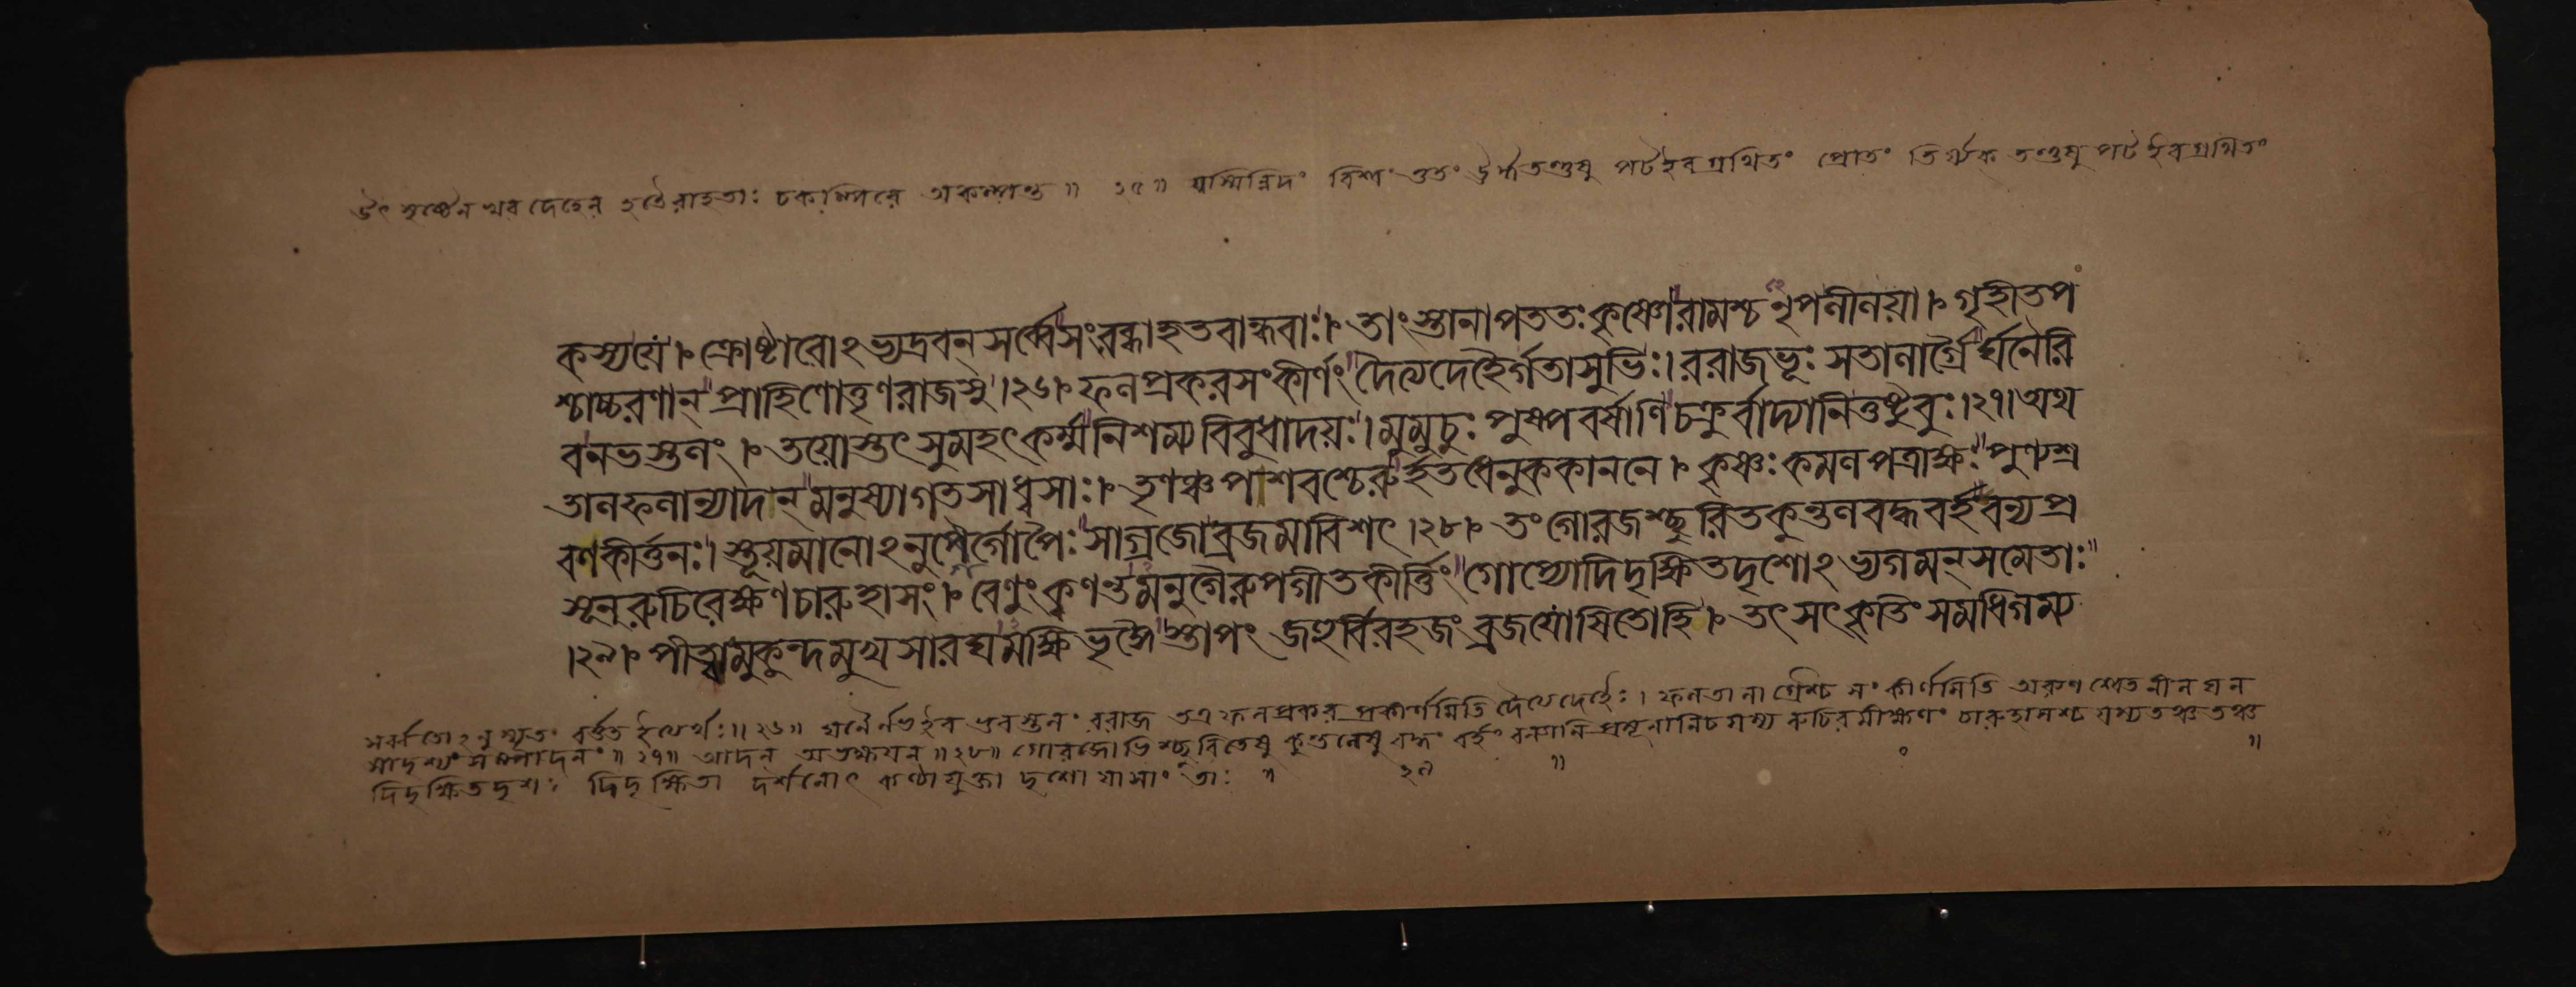 উৎসৃষ্টেন খরদেহেন হঠৈরাহতাঃ চকম্পিরে অকম্পন্ত ॥ ২৫ ॥ যস্মিন্নিদং বিশ্বং ওতং ঊর্দ্ধতন্তুষু পটইবগ্রথিতং প্রোতং তির্য্যক তন্তুষু পট ইবগ্রথিতং
কস্যযে । ক্রোষ্টারোঽভ্যদ্রবন্ সর্ব্বেসংরব্ধাহতবান্ধবাঃ । তাংস্তানাপততঃকৃষ্ণোরামশ্চনৃপলীলয়া । গৃহীতপ
শ্চাচ্চরণান্ প্রাহিণোত্তৃণরাজসু ।২৬। ফলপ্রকরসংকীর্ণং দৈত্যদেহৈর্গতাসুভিঃ । ররাজভূঃ সতালাগ্রৈর্ঘনৈরি
বনভস্তলং । তয়োস্তৎ সুমহৎকর্ম্মনিশম্যবিবুধাদয়ঃ । মুমুচুঃ পুষ্পবর্ষাণিচক্রুর্বাদ্যানিতুষ্টুবুঃ ।২৭। অথ
তালফলান্যাদান্ মনুষ্যাগতসাধ্বসাঃ । তৃণঞ্চপাশবশ্চেরুর্হতধেনুককাননে । কৃষ্ণঃ কমলপত্রাক্ষঃ পুণ্যশ্র
বণকীর্ত্তনঃ । স্তূয়মানোঽনুগৈর্গোপৈঃ সাগ্রজোব্রজমাবিশৎ ।২৮। তংগোরজশ্ছুরিতকুন্তলবদ্ধবর্হবন্যপ্র
সূনরুচিরেক্ষণচারুহাসং । বেণুংক্বণন্তমনুগৈরুপগীতকীর্ত্তিং গোপ্যোদিদৃক্ষিতদৃশোঽভ্যগমন্ সমেতাঃ
।২৯। পীত্বামুকুন্দমুখসারঘমক্ষিভৃঙ্গৈস্তাপং জহুর্বিরহজং ব্রজযোষিতোহ্নি । তৎ সৎকৃতিং সমধিগম্য
সর্ব্বতোঽনুস্যূতং বর্ত্তত ইত্যর্থঃ ॥ ২৬ ॥ ঘনৈর্নভইব ভূবস্তলং ররাজ তত্র ফলপ্রকর প্রকীর্ণমিতি দৈত্যদেহৈঃ । ফলতালাগ্রৈশ্চ সংকীর্ণমিতি অরুণ শ্বেত নীল ঘন
সাদৃশ্যং সম্পাদনং ॥ ২৭ ॥ আদন্ অভক্ষয়ন্ ॥ ২৮ ॥ গোরজোভিশ্ছুরিতেষু কুন্তলেষু বদ্ধং বর্হং বন্যানি প্রসূনানিচ যস্য রুচিরমীক্ষণং চারুহাসশ্চ যস্যতঞ্চ তঞ্চ
দিদৃক্ষিতদৃশঃ দিদৃক্ষিতা দর্শনোৎ কণ্ঠাযুক্তা দৃশো যাসাং তাঃ ॥ ২৯ ॥ ॥